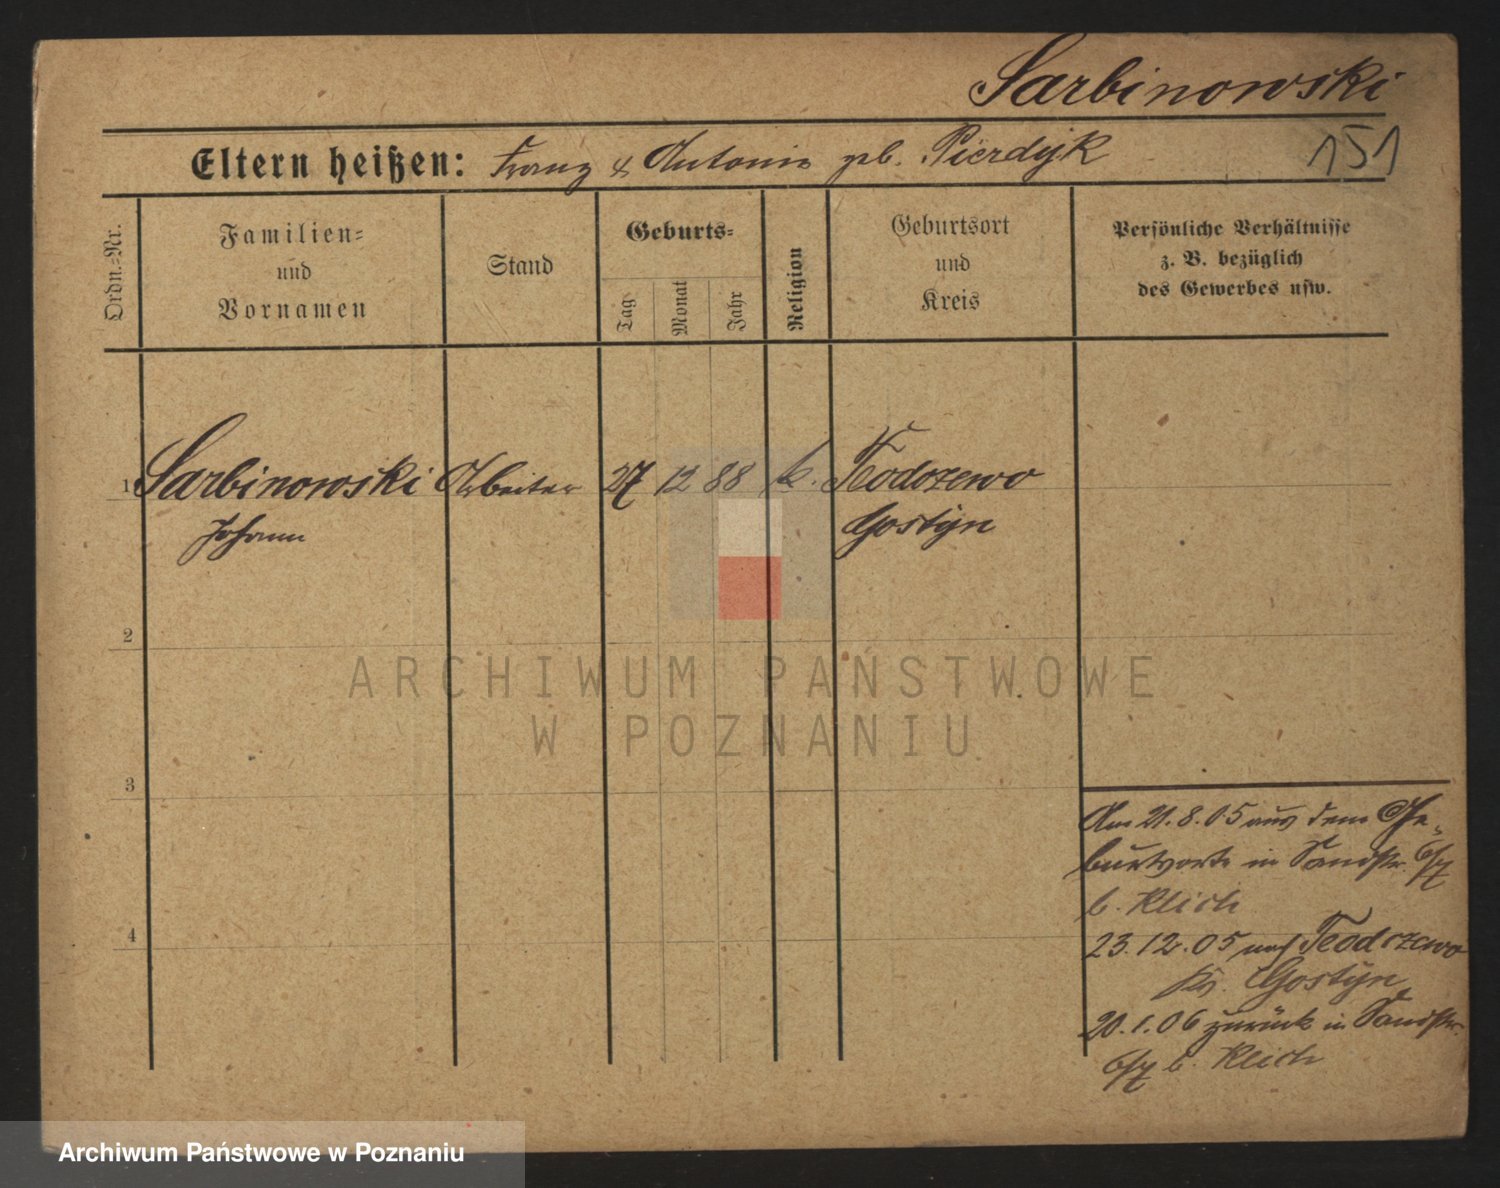 Sarbinowski
151
Eltern heißen: Franz & Antonie geb. Pierdyk
Ordn.-Nr.
Familien-
und
Vornamen
Stand
Geburts-
Tag
Monat
Jahr
Religion
Geburtsort
und
Kreis
Persönliche Verhältnisse
z. B. bezüglich
des Gewerbes usw.
1 Sarbinowski Arbeiter 27 12 88 k. Teodozewo
Johann Gostyn
2
3
4
Am 21.8.05 aus dem Ge-
burtsorte in Sandstr. 6/7
b. Klich
23.12.05 nach Teodozewo
Kr. Gostyn
20.1.06 zurück in Sandstr.
6/7 b. Klich
ARCHIWUM PAŃSTWOWE
W POZNANIU
Archiwum Państwowe w Poznaniu